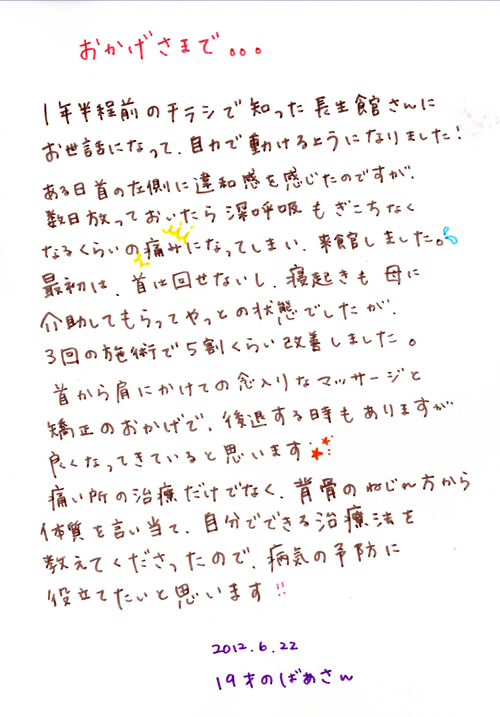 おかげさまで...
1年半程前のチラシで知った長生食官さんに
お世話になって、自力で動けるようになりました!
ある日首の左側に違和感を感じたのですが、
数日放っておいたら深呼吸もぎこちなく
なるくらいの痛みになってしまい、来館しました。
最初は、首は回せないし、寝起きも母に
介助してもらってやっとの状態でしたが、
3回の施術で5割くらい改善しました。
首から肩にかけての念入りなマッサージと
矯正のおかげで、後退する時もありますが
良くなってきていると思います
痛い所の治療だけでなく、背骨のねじれ方から
体質を言い当て、自分でできる治療法を
教えてくださったので、病気の予防に
役立てたいと思います!!
2012.6.22
19才のばあさん